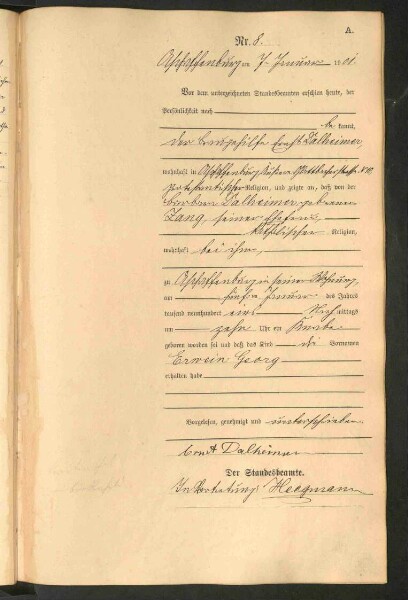 A.
Nr. 8.
Aschaffenburg am 7. Januar 1901.
Vor dem unterzeichneten Standesbeamten erschien heute, der
Persönlichkeit nach
be kannt,
der Ernst Dalheimer,
wohnhaft in Aschaffenburg
protestantischer Religion, und zeigte an, daß von der
Barbara Dalheimer, geborenen
Zang, seiner Ehefrau,
katholischer Religion,
wohnhaft bei ihm,
zu Aschaffenburg in seiner Wohnung,
am fünften Januar des Jahres
tausend neunhundert eins Nachmittags
um zehn Uhr ein Knabe
geboren worden sei und daß das Kind die Vornamen
Erwein Georg
erhalten habe
Vorgelesen, genehmigt und unterschrieben
Ernst Dalheimer
Der Standesbeamte.
In Vertretung: Heegmann